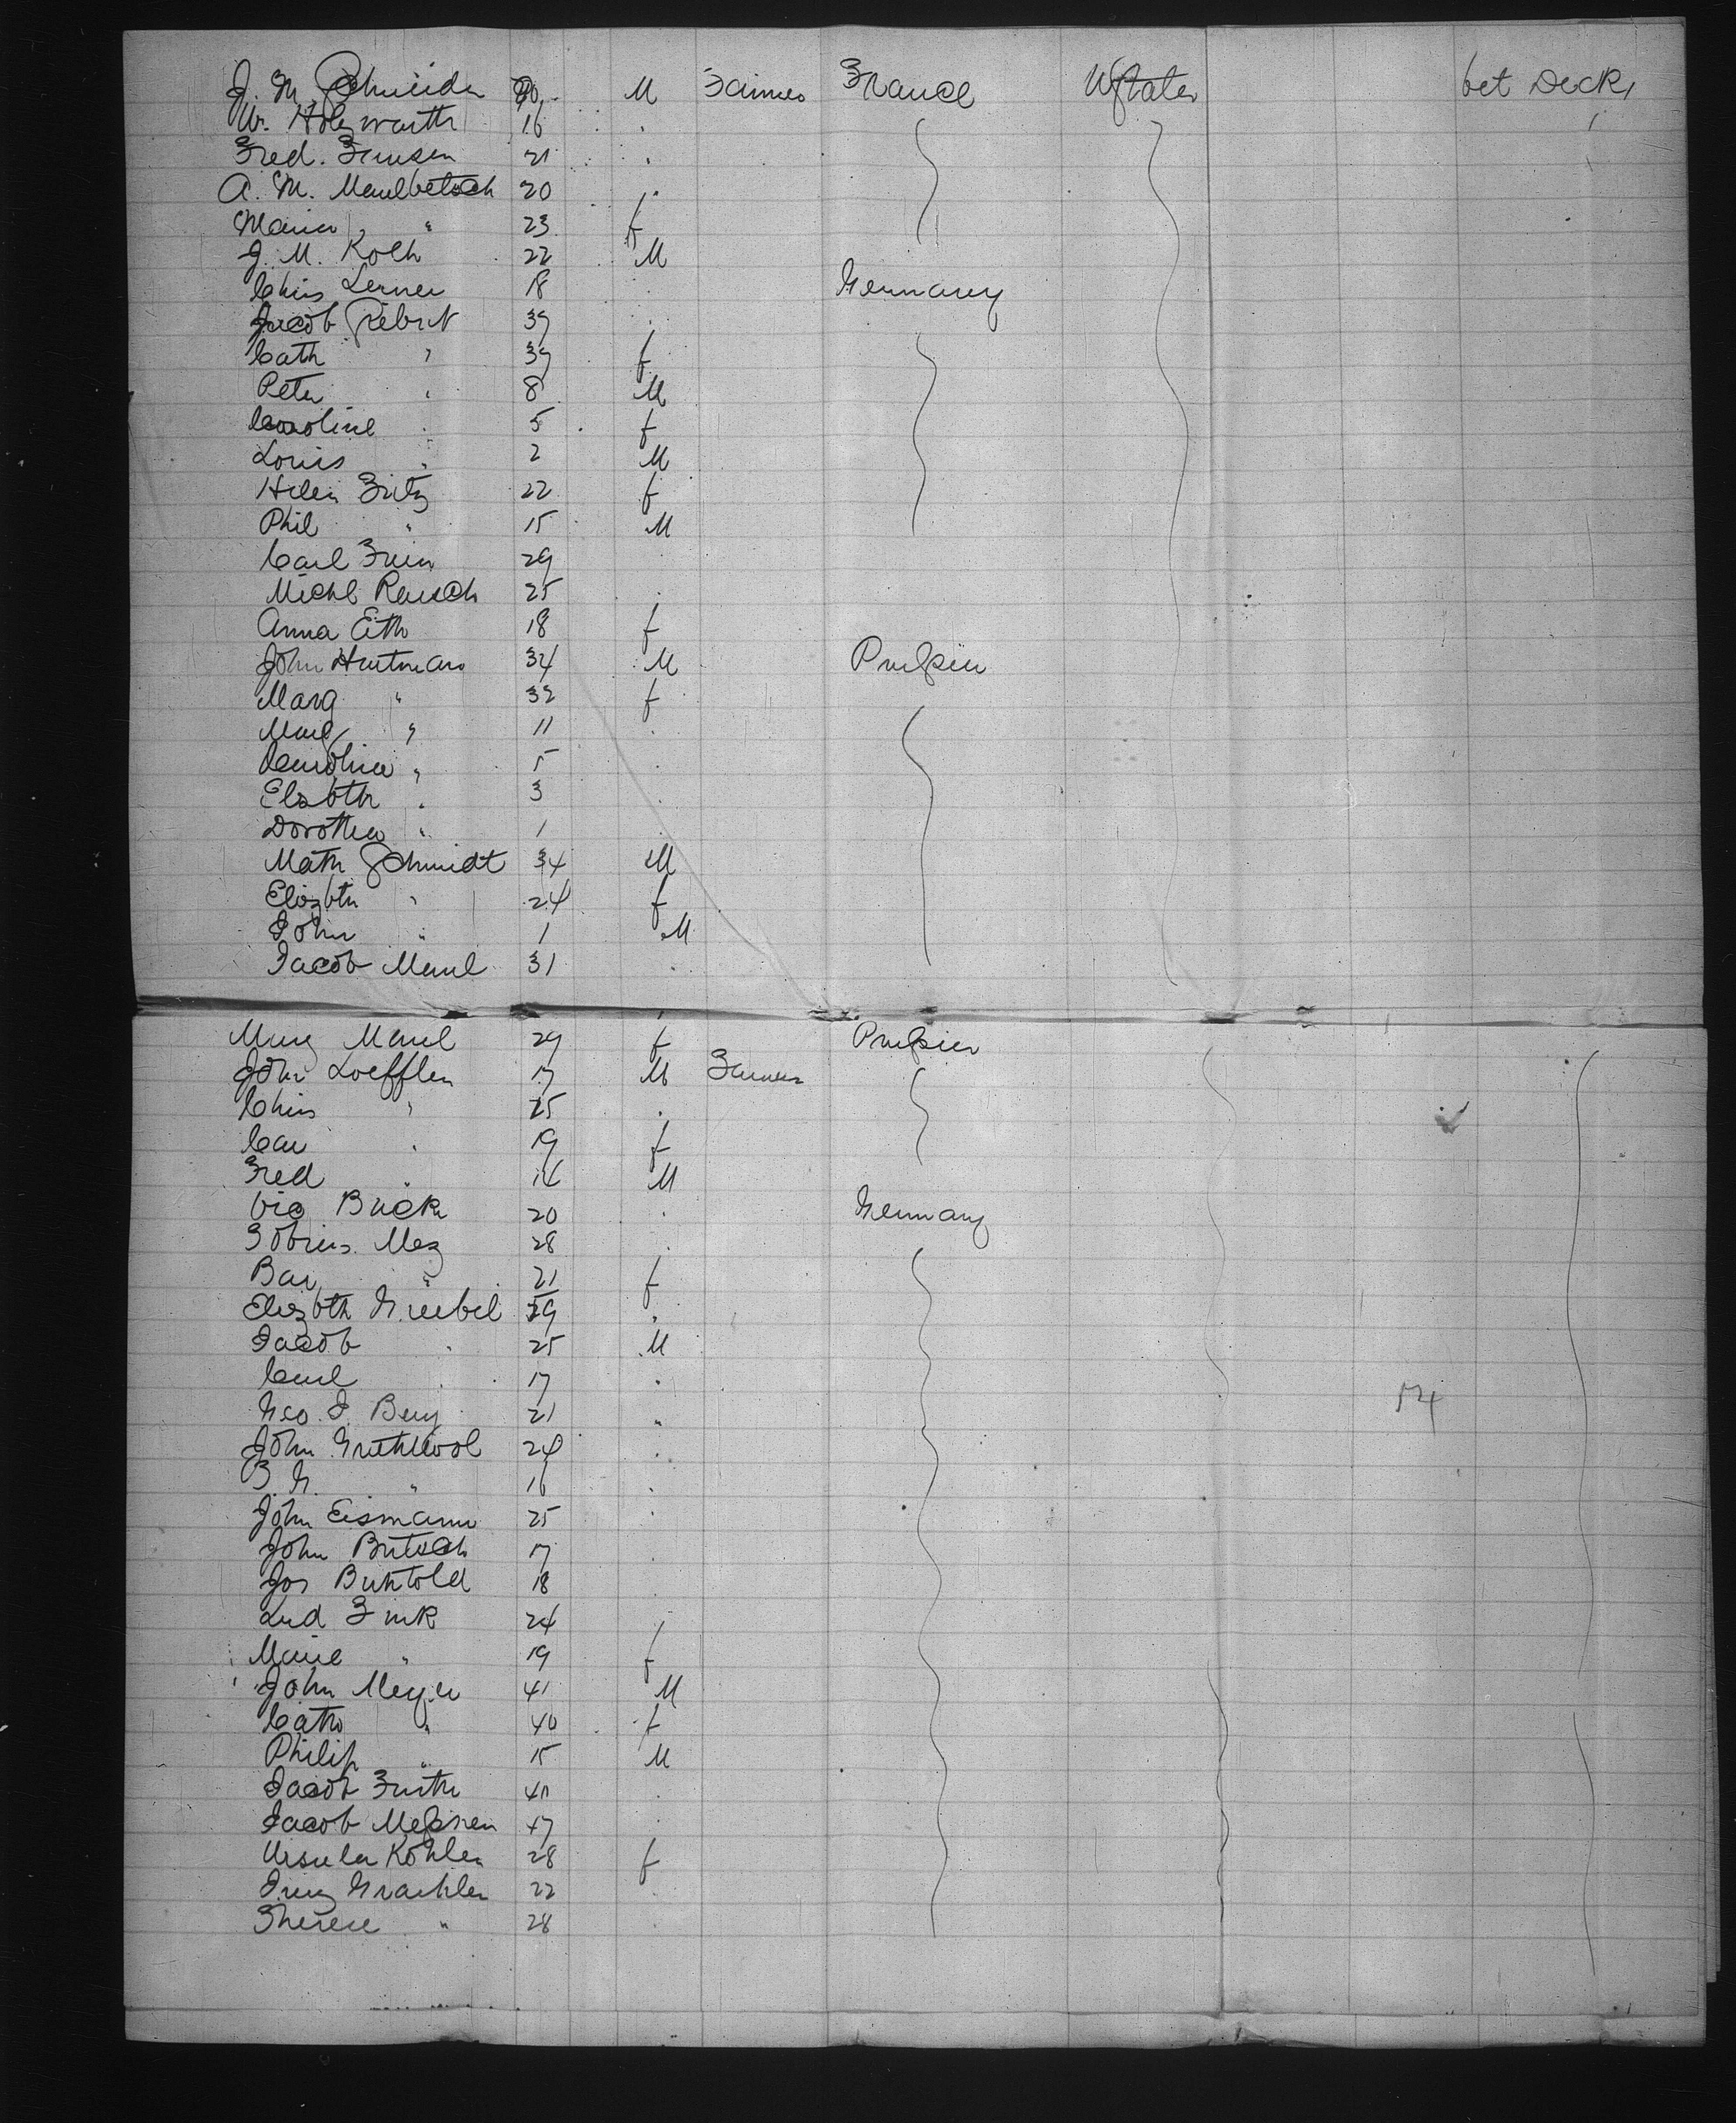 J. M. Schneider M Farmer France UStates bet Decks
W. Holzwarth 16 "
Fred. Jensen 21 "
A. M. Maulbetsch 20 "
Maria " 23 f
J. M. Kolb 22 M
Chris Lerner 18 " Germany
Jacob Siebert 39 "
Cath " 39 f
Peter " 8 M
Caroline " 5 f
Louis " 2 M
Helen Fritz 22 f
Phil " 15 M
Carl 29
Michl Rausch 25 "
Anna Eith 18 f
John Hartman 34 M Prussia
Marg " 32 f
Marg " 11 "
Carolina " 5 "
Elsbth " 3 "
Dorothea " 1 "
Math Schmidt 34 M
Elizbth " 24 f
John " 1 M
Jacob Maul 31 "
Marg Maul 29 f Prussia
John Loeffler 17 M Farmer
Chris " 25 "
Car " 19 f
Fred " 14 M
Vic Buck 20 " Germany
Tobias Mez 28 "
Bar " 21 f
Elizbth 29 "
Jacob " 25 M
Carl " 17 "
Geo. J. Berg 21 " 54
John 24 "
F. G. " 16 "
John Eismann 25 "
John Butsch 17 "
Jos Berthold 18 "
Lud Fink 24
Marie " 19 f
John Meyer 41 M
Cath " 40 f
Philip " 15 M
Jacob 40 "
Jacob Messner 47 "
Ursula Kohler 28 f
22
Therese " 28 "